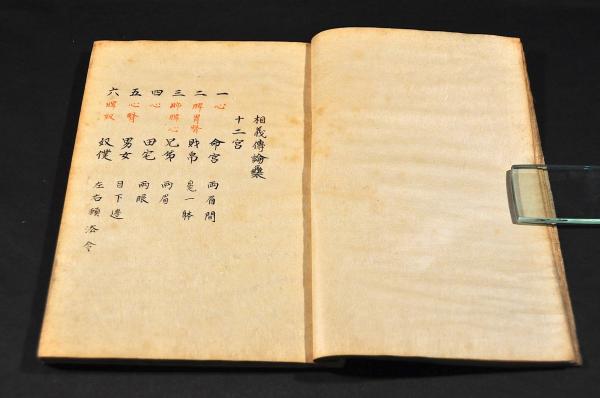 相義傳論藥
十二宮
一 心 命宮 両眉間
二 脾胃腎 財帛 鼻一體
三 肺脾心 兄弟 両眉
四 心 田宅 両眼
五 心腎 男女 目下邉
六 脾 奴僕 左右頬